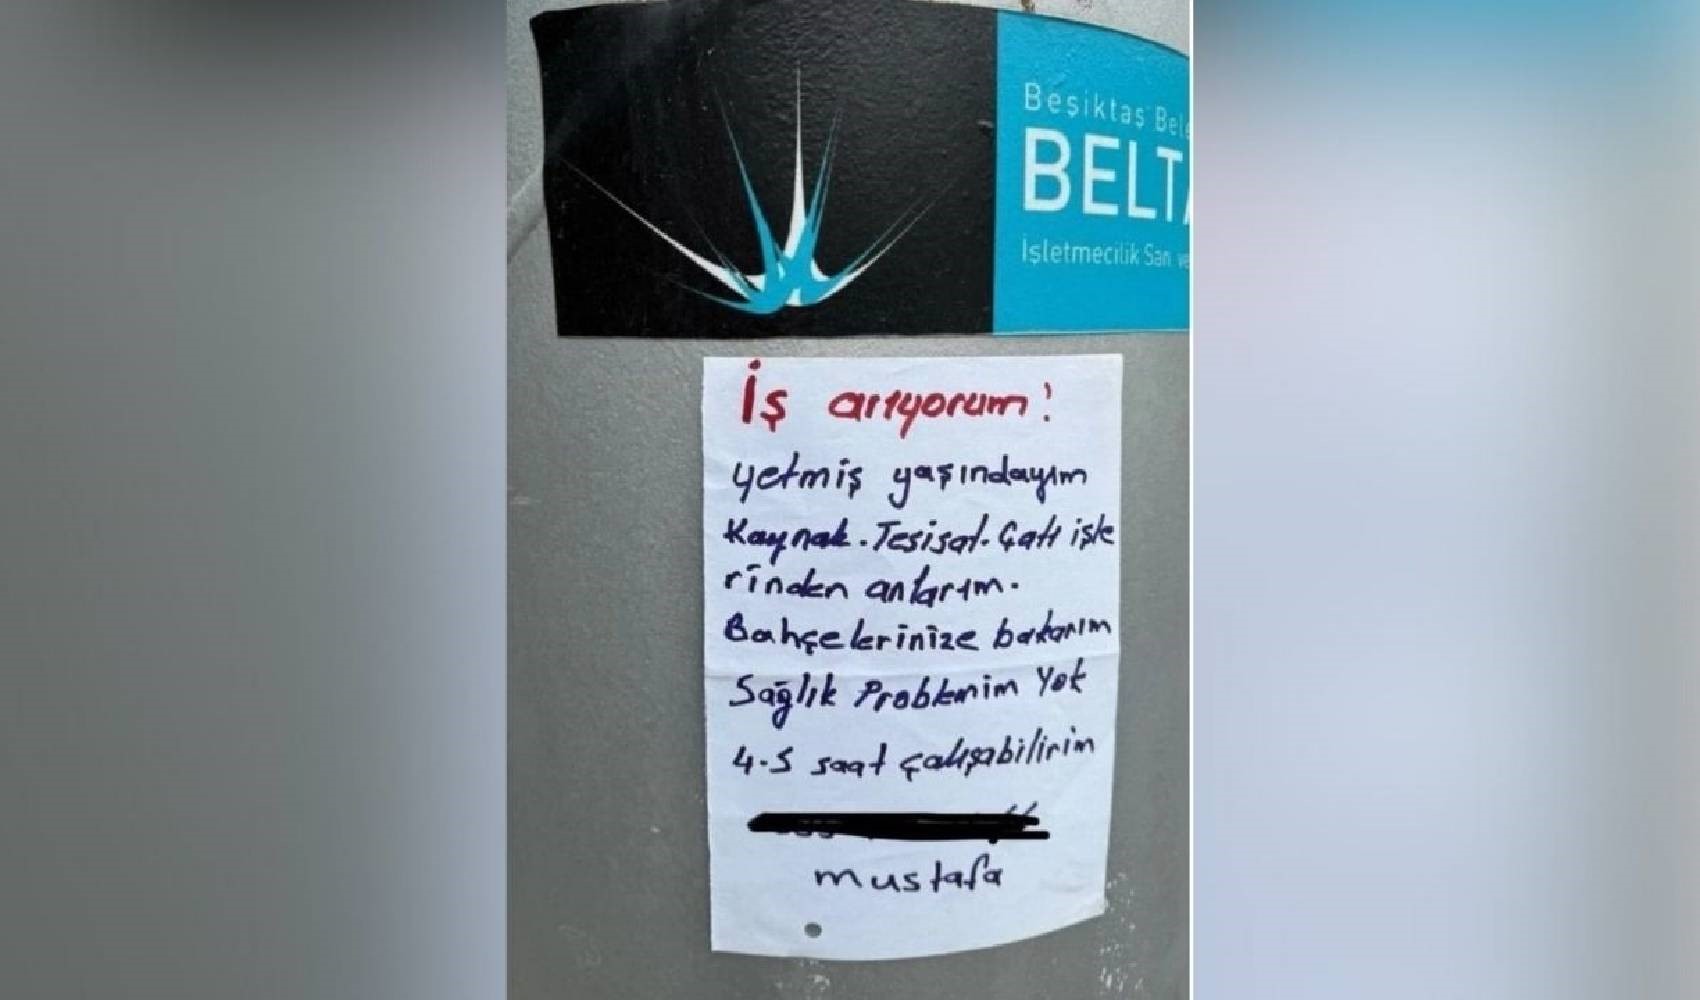 Beşiktaş Bele
BELTA
İşletmecilik San. ve
İş arıyorum!
yetmiş yaşındayım
Kaynak. Tesisat. Çatı işle
rinden anlarım.
Bahçelerinize bakarım
Sağlık Problemim Yok
4-5 saat çalışabilirim
mustafa